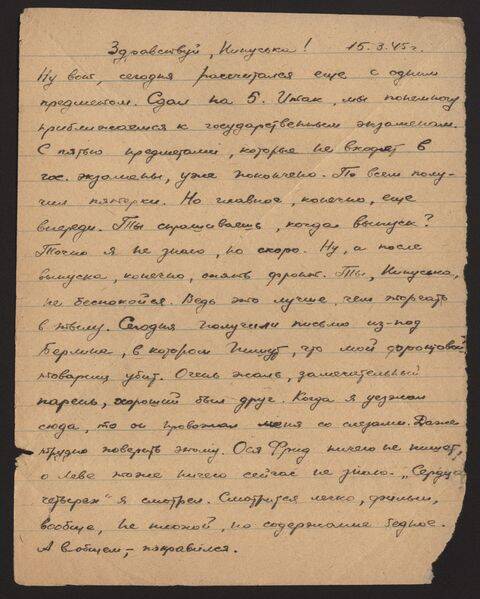 Здравствуй, Нинуська! 15.3.45 г.
Ну вот, сегодня рассчитался еще с одним
предметом. Сдал на 5. Итак, мы понемногу
приближаемся к государственным экзаменам.
С пятью предметами, которые не входят в
гос. экзамены, уже покончено. По всем полу-
чил пятерки. Но главное, конечно, еще
впереди. Ты спрашиваешь, когда выпуск?
Точно я не знаю, но скоро. Ну, а после
выпуска, конечно, опять фронт. Ты, Нинуська,
не беспокойся. Ведь это лучше, чем торчать
в тылу. Сегодня получили письмо из-под
Берлина, в котором пишут, что мой фронтовой
товарищ убит. Очень жаль, замечательный
парень, хороший был друг. Когда я уезжал
сюда, то он провожал меня со слезами. Даже
трудно поверить этому. Ося Фрид ничего не пишет,
о Леве тоже ничего сейчас не знаю. „Сердца
четырех" я смотрел. Смотрится легко, фильм,
вообще, не плохой, но содержание бедное.
А в общем, – понравился.